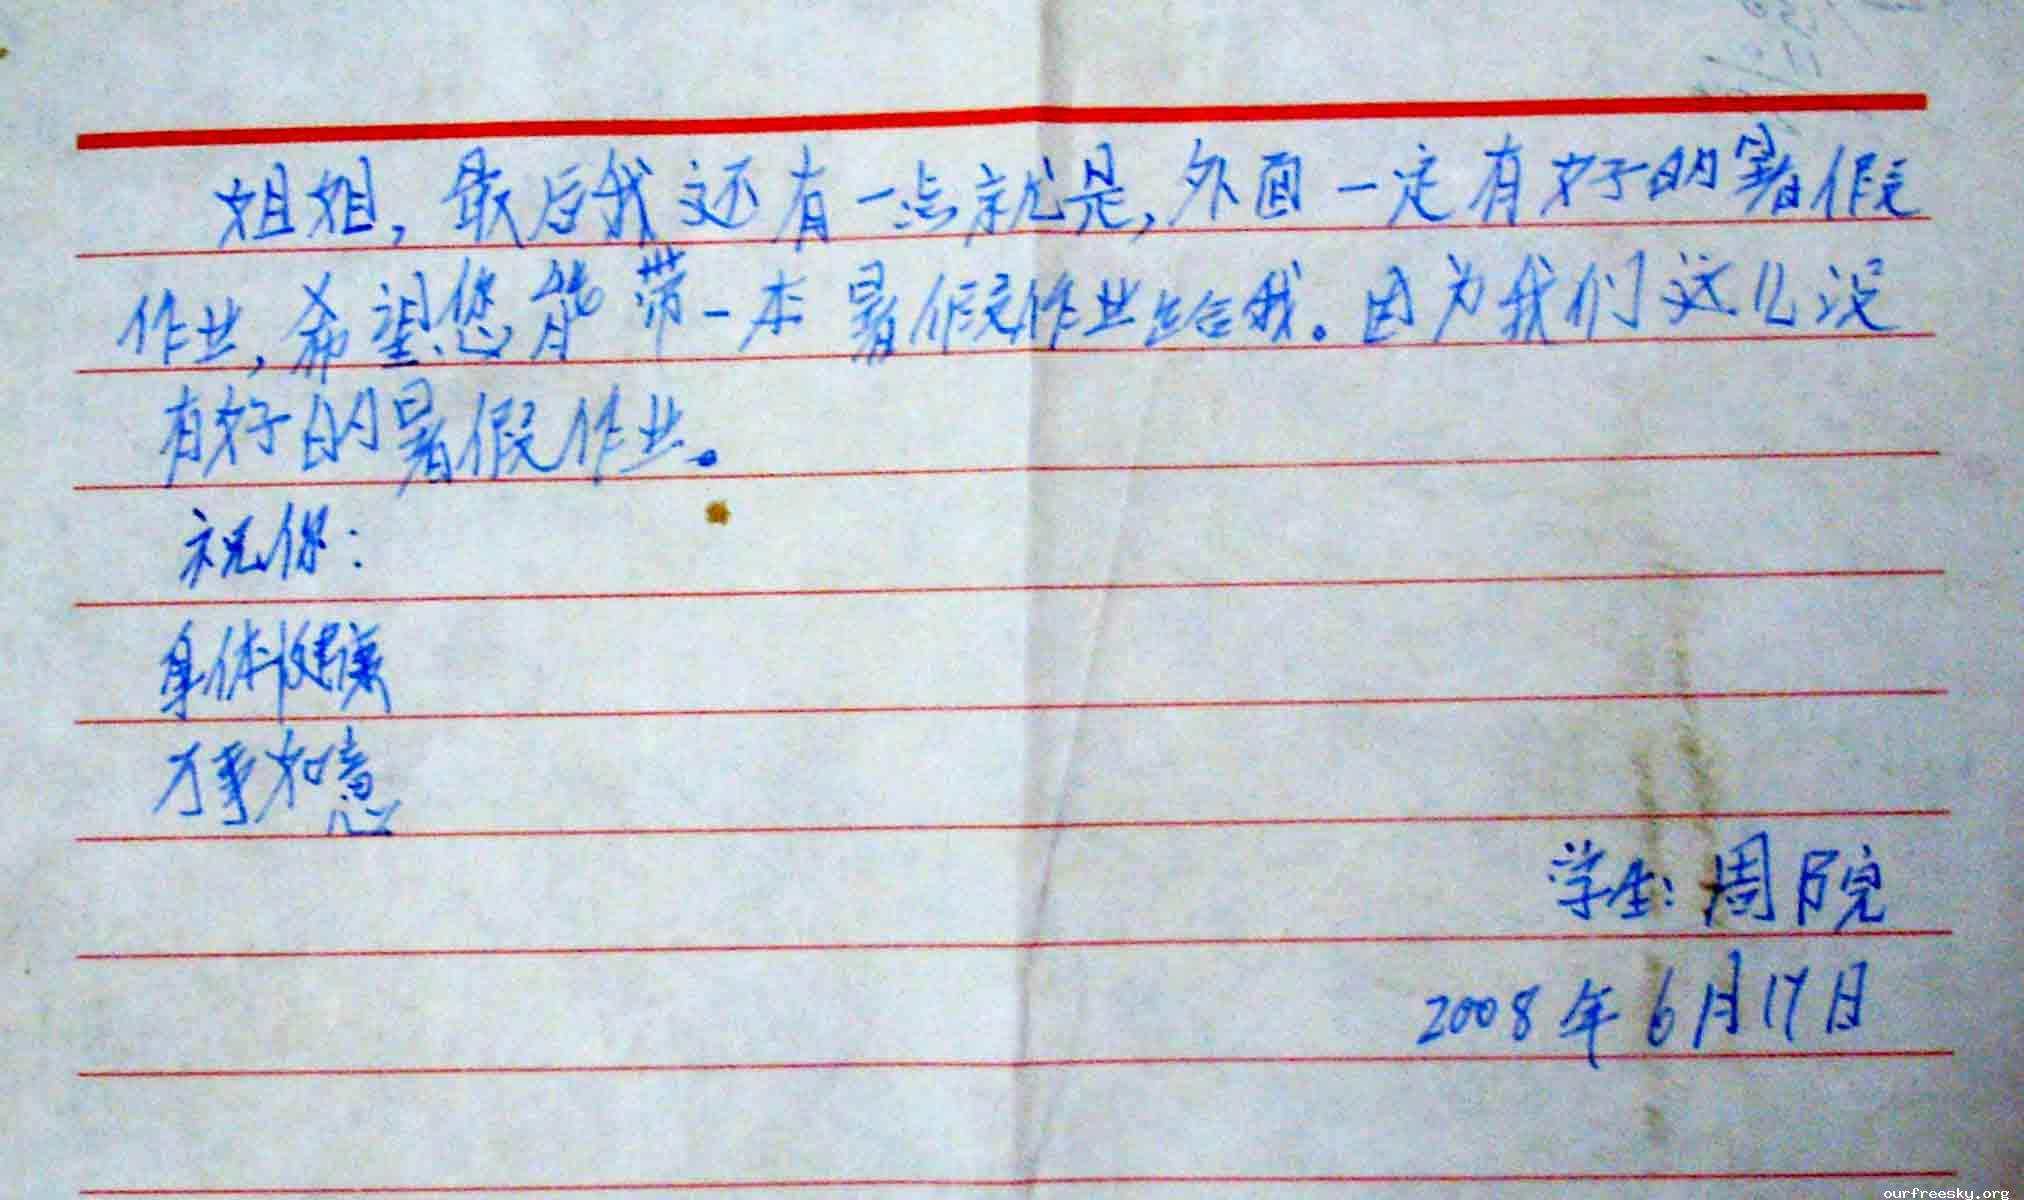 姐姐，最后我还有一点就是，外面一定有好的暑假
作业，希望您能带一本暑假作业给我。因为我们这儿没
有好的暑假作业。
祝你：
身体健康
万事如意
学生：周院
2008年6月17日
ourfreesky.org